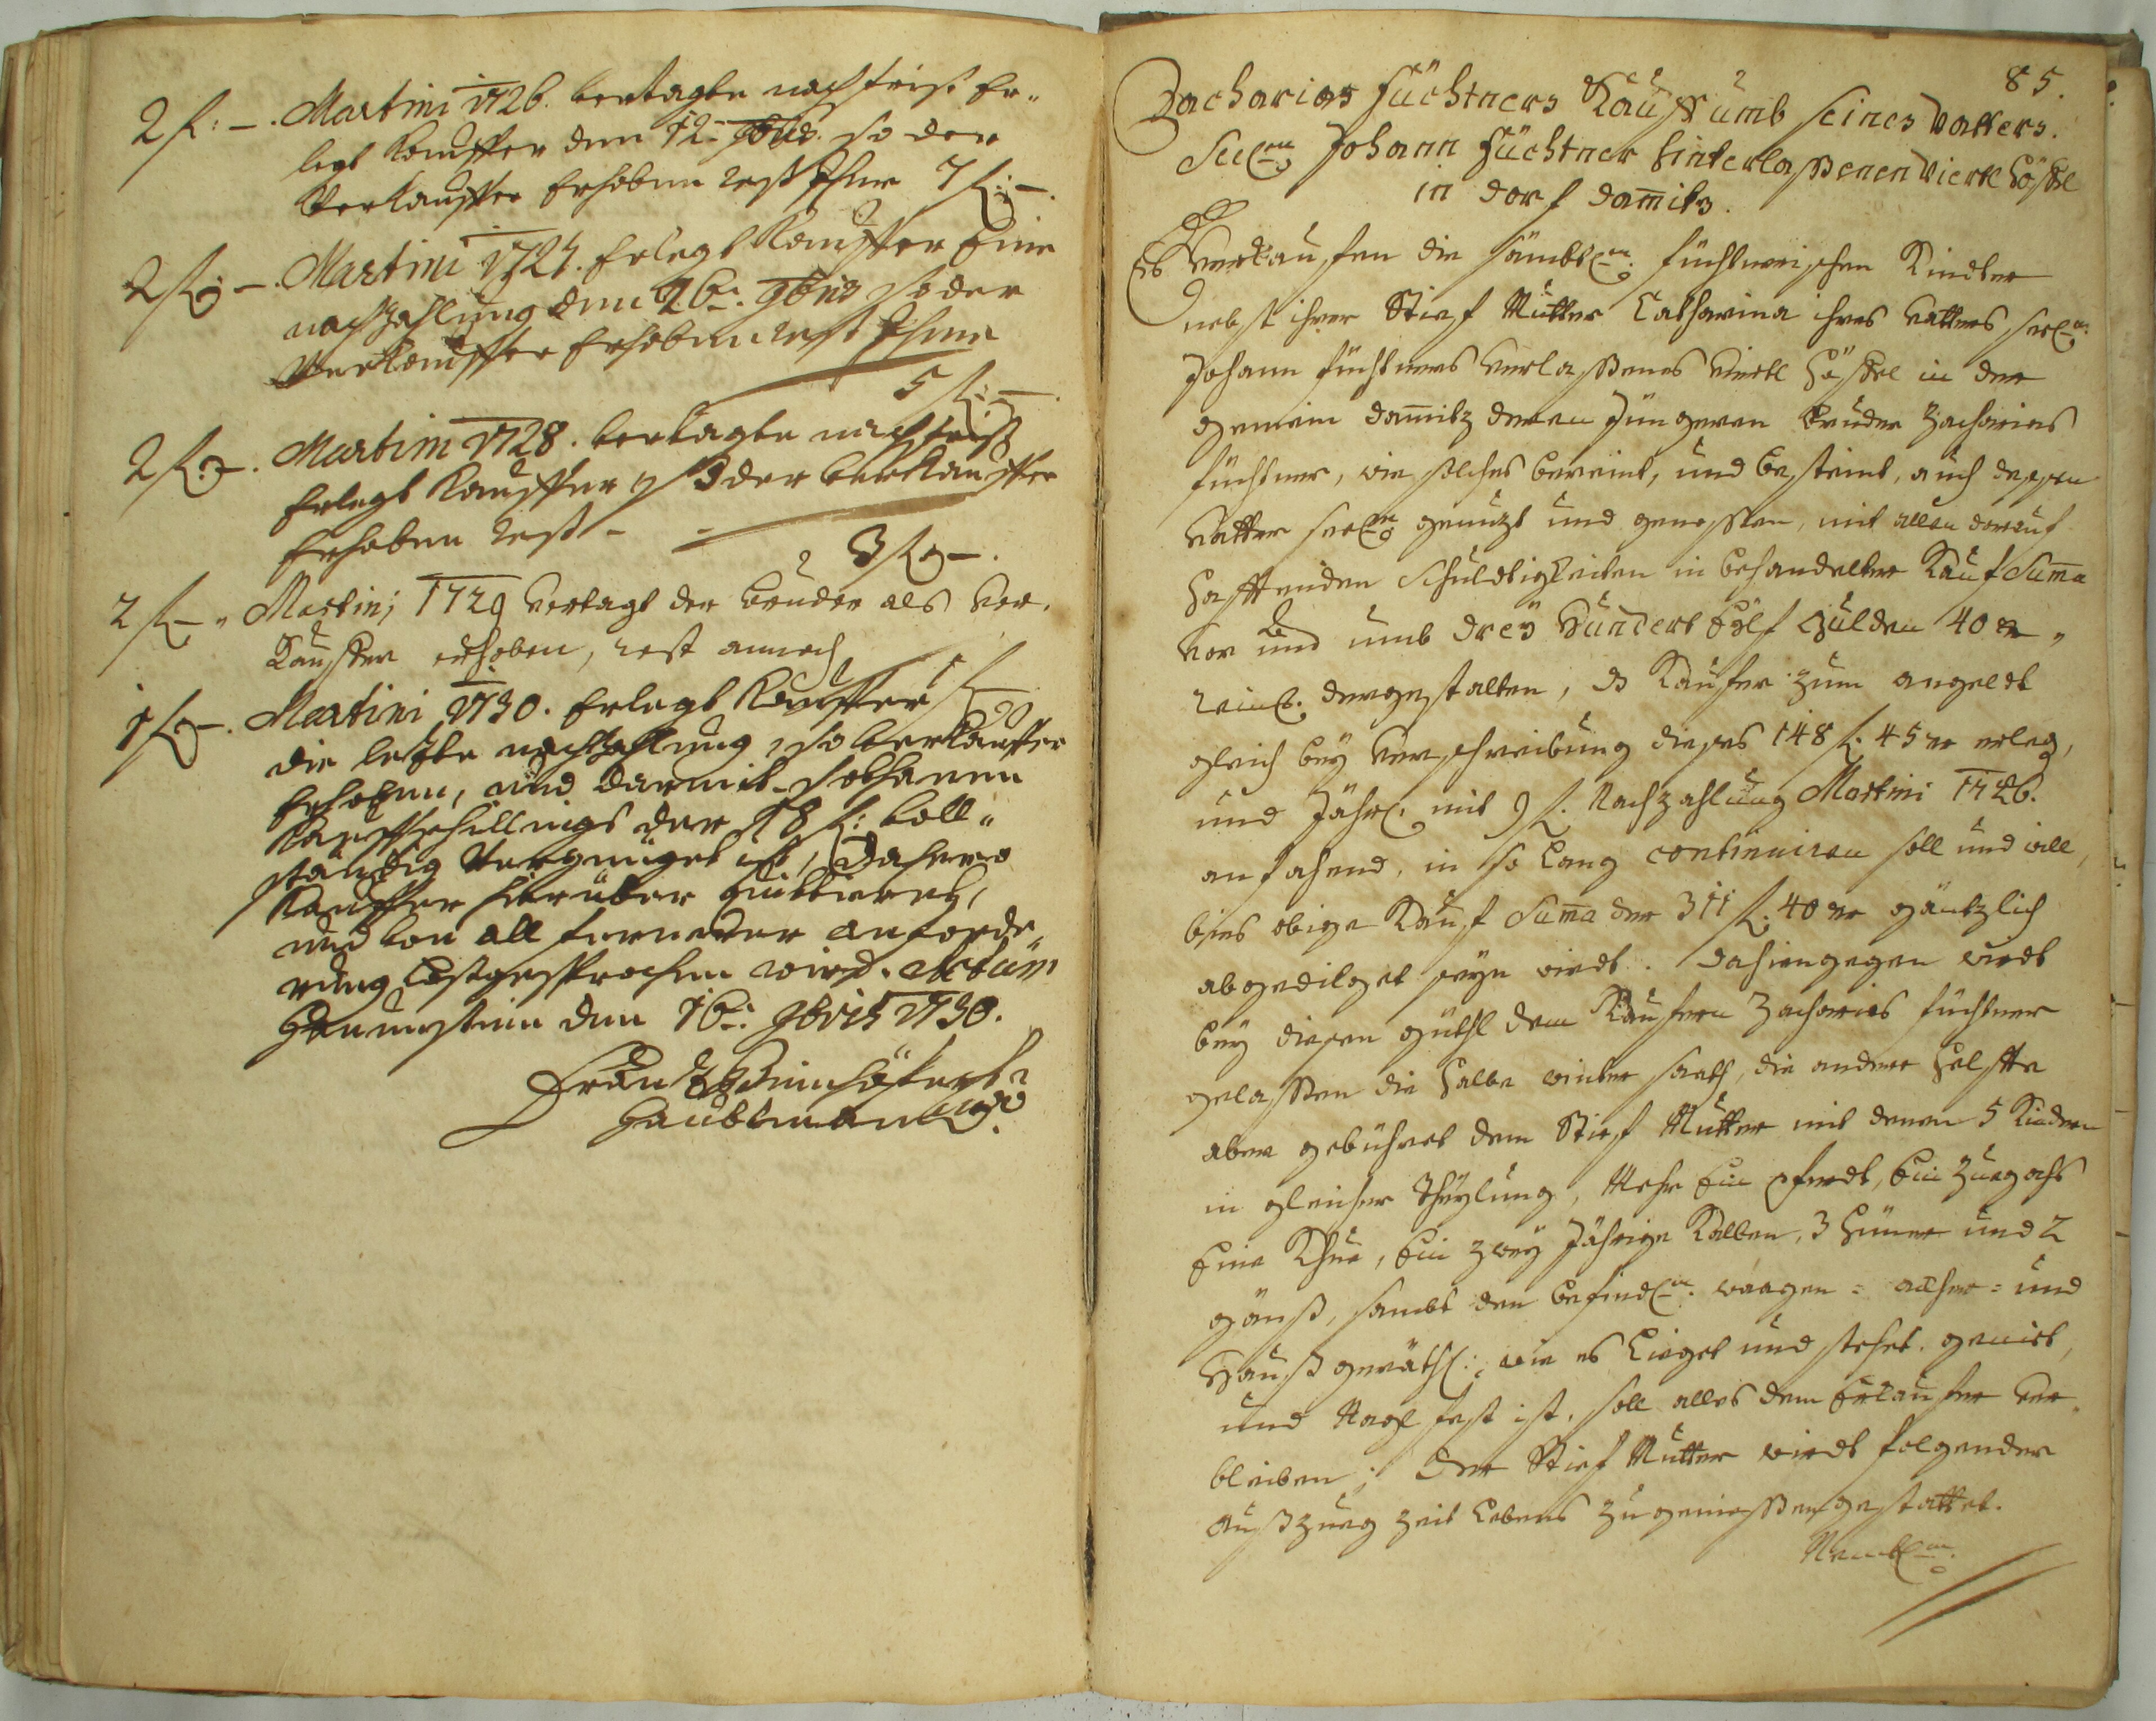 2 f: –. Martini 1726. vertagte nachfrist Er-
legt Kauffer den 12. 9bris. so der
Verkauffer Erhoben rest Ihme 7 f: –.
2 f: –. Martini 1727. Erlegt Kauffer Eine
nachzahlung den 26. 9bris so der
Verkauffer Erhoben rest Ihme
5 f: –.
2 f: –. Martini 1728. vertagte nachfrist
Erlegt Kauffer so der Verkauffer
Erhoben rest –
3 f: –.
2 f – " Martini 1729 vertagt der Bruder als Ver-
Kauffer erhoben, rest annoch
1 f
1 f: –. Martini 1730. Erlegt Kauffer
die letzte nachzahlung, so Verkauffer
Erhoben, und darmit sothanen
Kauffschillings der 18 f: voll-
ständig Vergnüget ist, Dahero
Kauffer hierüber quittieret,
und von all fernerer anforde-
rung Lossgesprochen wird. Actum
den 16. 9bris 1730.
Frantz
Haubtman

85.
Zacharias Füchtners Kauff umb seines Vatters.
Seel. Johann Füchtner hinterlaßenen Viertl Höffl
in dorf Dam̄itz.
Es Verkaufen die sämbtl. füchtnerischen Kinder
nebst ihrer Stief Mutter Catharina ihres Vatters seel.
Johann füchtners verlaßenes Viertl Höffel in der
gemein Dam̄itz deren Jüngeren bruder Zacharias
füchtner, wie solches bereint, und besteint, auch dessen
Vatter seel. genutzt und genossen, mit allen darauf
hafftenden Schuldigkeiten in behandelter Kauf Sum̄a
vor und umb dreÿ Hundert Eÿlf Gulden 40 xr,
reinl. dergestalten, ds Kaufer zum angeldt
gleich beÿ Verschreibung dieses 148 f. 45 xr erleg,
und Jährl. mit 9 f. Nachzahlung Martini 1726.
anfahend, in so lang continuiren soll und will,
bies obige Kauf Sum̄a der 311 f. 40 xr gäntzlich
abgedilget seÿn wirdt. Dahingegen wirdt
beÿ diesen güthl dem Kaufern Zacharias füchtner
gelassen die Halbe winter saath, die andere helffte
aber gebühret dem Stief Mutter mit denen 5 Kindern
in gleicher Theÿlung, Mehr Ein Pferdt, Ein Zuegochs
Eine Khue, Ein zweÿ Jährige Kalben, 3 Hüner und 2
gänß, sambt den befindl. waagen = ackher = und
Hauß geräthl: wie es lieget und stehet. geniet,
und Nagl fest ist, soll alles dem Erkaufer ver-
bleiben; Der Stief Mutter wirdt folgender
Außzueg zeit lebens zu geniessen gestattet.
Nembl.